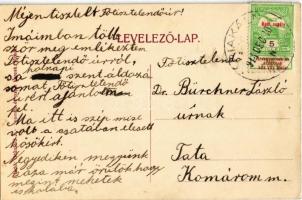 Méjen tisztelt Főtisztelendő úr!
Imáimban több-
ször meg emlékeztem
Főtisztelendő úrról,
a holnapi
szent áldoza
tomat, Főtisztelendő
úrért ajánlom
fel.
Ma itt is szép mise
volt a csatában elesett
hősökért.
Negyediken megyünk
haza már örülök hogy
megint mehetek
iskolába.
LEVELEZŐ-LAP.
5
Főtisztelendő
Dr. Bürchner László
úrnak
Tata
Komárom m.